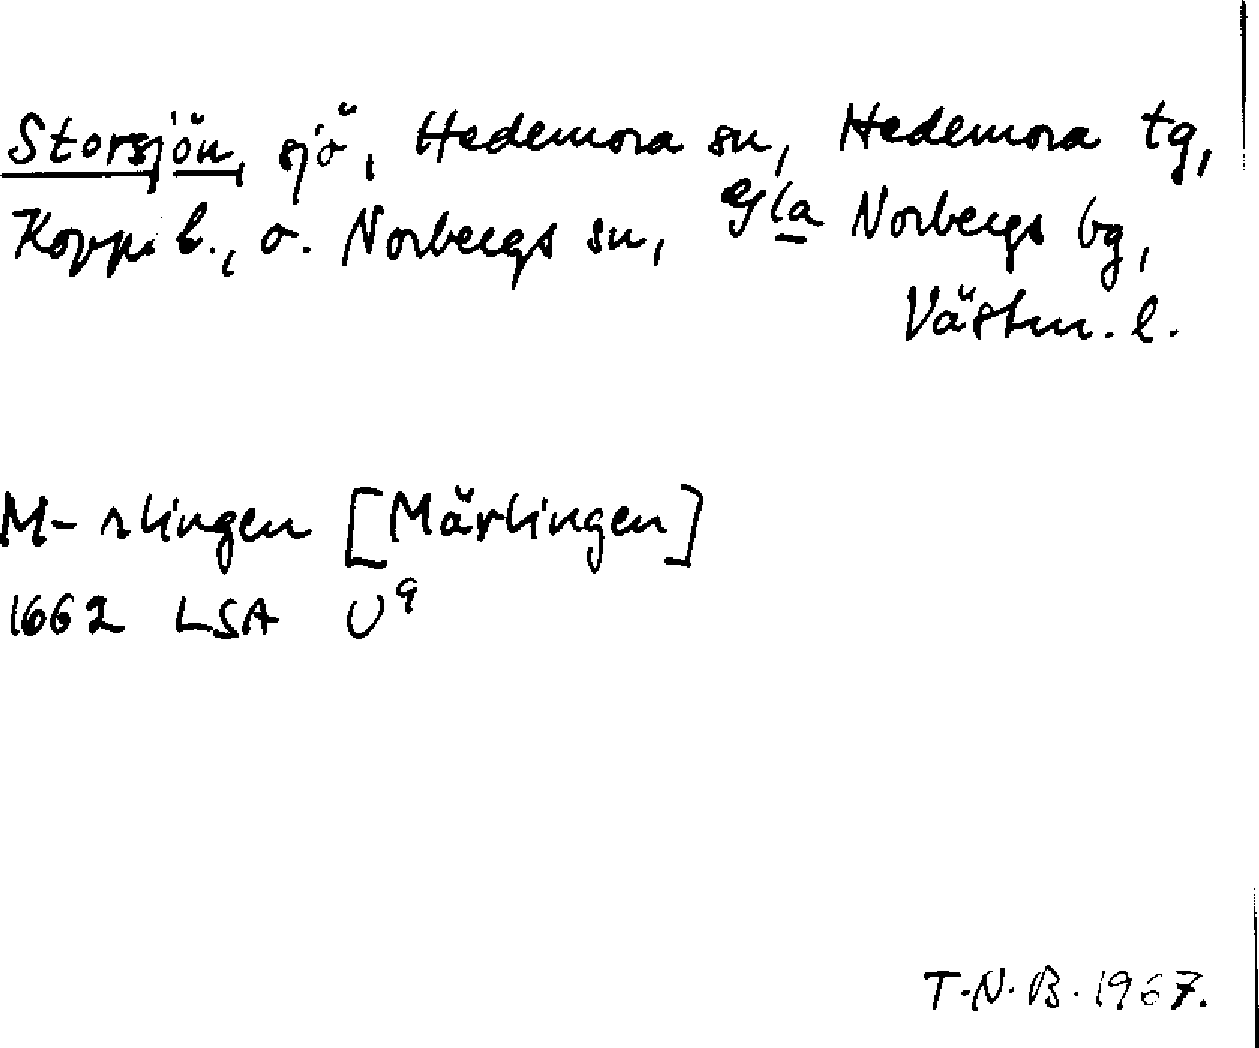 Storsjön, sjö, Hedemora sn, Hedemora tg,
Kopp. l., o. Norbergs sn, Gla Norbergs bg,
Västm. l.
M-rlingen [Märlingen]
1662 LSA U9
T.N.B. 1967.